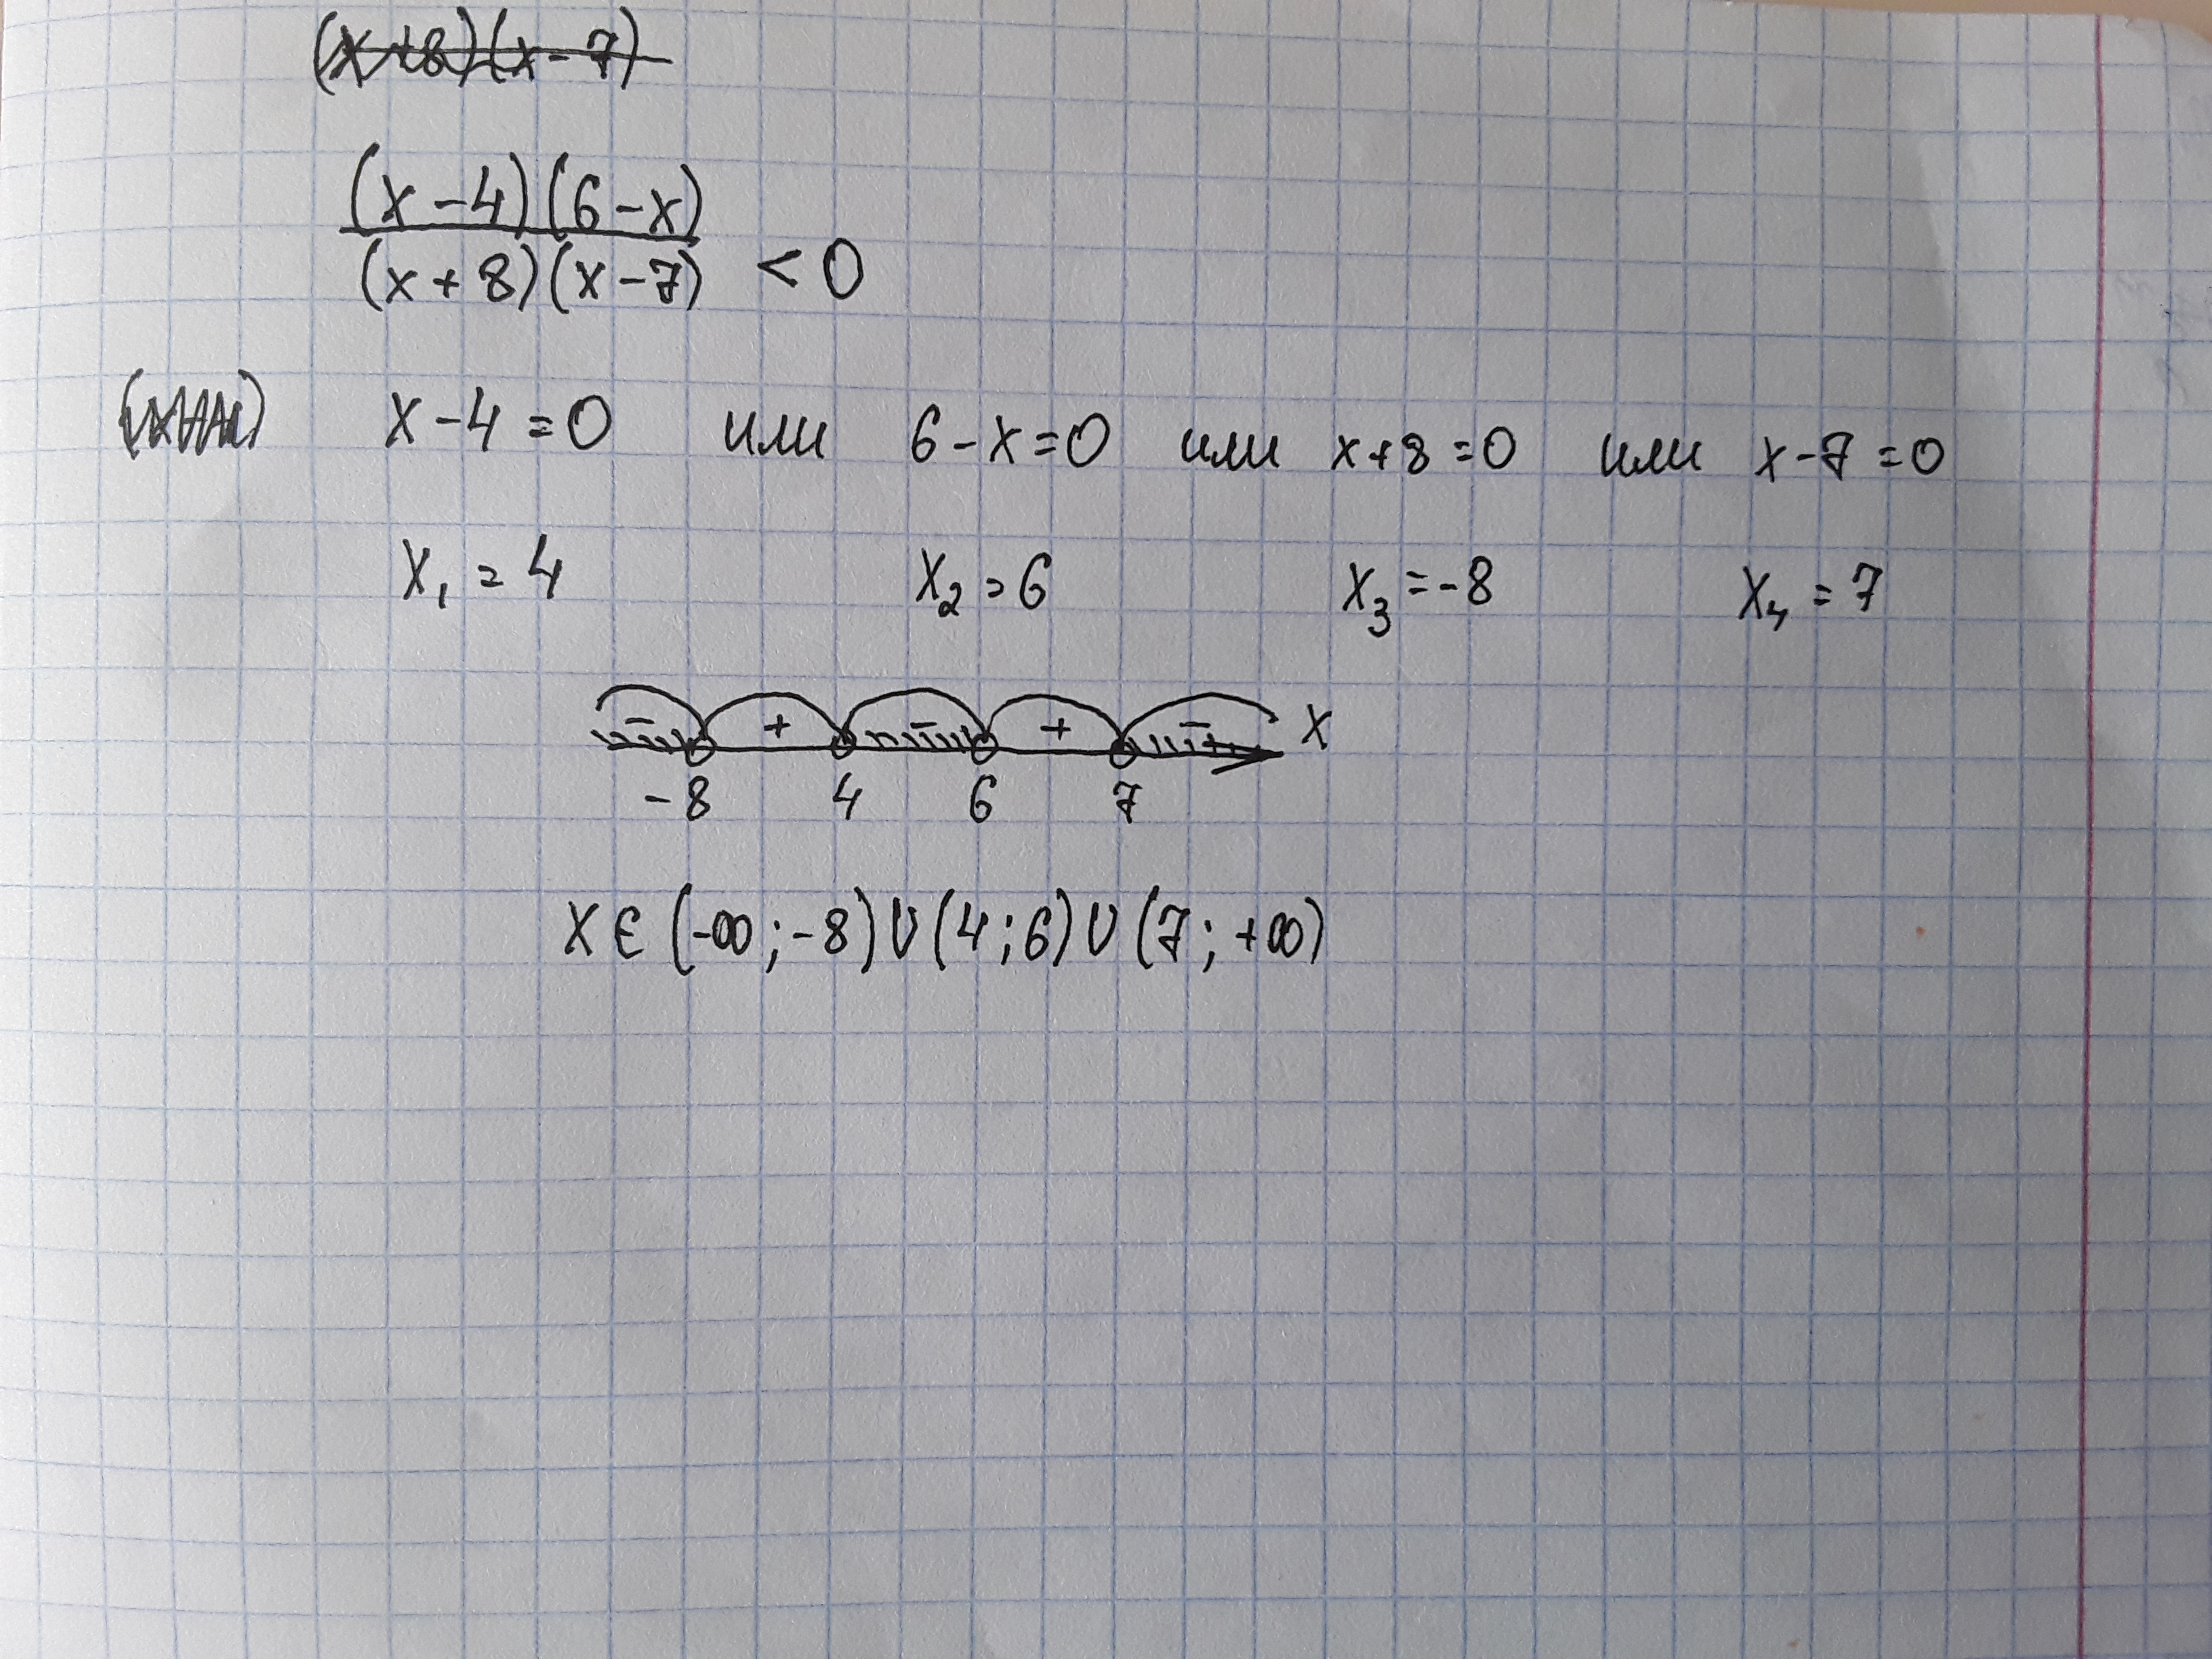 (x+8)(x-7)
(x-4)(6-x)
(x+8)(x-7) < 0
x-4=0 или 6-x=0 или x+8=0 или x-7=0
x₁=4 x₂=6 x₃=-8 x₄=7
- + - + - x
-8 4 6 7
x∈(-∞;-8)∪(4;6)∪(7;+∞)